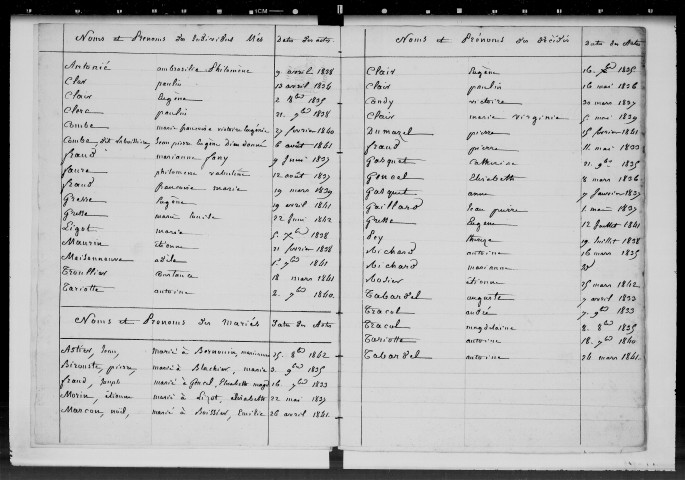 Noms et Prénoms des Individus Nés Dates des actes
Antonié ambrosilie Philomène 9 avril 1838
Clair paulin 13 avril 1836
Clair Eugène 2 8bre 1835
Clerc paulin 21 9bre 1838
Combe marie francoise victoire Eugénie 27 février 1840
Combe, dit Jean pierre Eugène dieu donné 6 août 1841
fraud marianne fany 9 Juin 1837
faure philomène valentine 12 août 1837
fraud francoise marie 19 mars 1839
Gresse Eugène 19 avril 1841
Grette marie lucile 22 Juin 1842
Ligot marie 5 Xbre 1838
Maurin étienne 21 février 1838
Maisonneuve adèle 5 9bre 1841
Trouillier Constance 18 mars 1841
Tariotte antoine 2 7bre 1840
Noms et Prénoms des mariés Date des Actes
Astier, Jean, marié à marianne 25 8bre 1842
Bérouste, pierre, marié à Blachier, marie 3 9bre 1835
fraud, Joseph marié à Gencel, Elisabeth magd 16 7bre 1833
Morin, étienne marié à Ligot, élisabeth 22 mai 1837
Mascou, noël, marié à Boissier, Emilie 26 avril 1841
Noms et Prénoms des Décédés Dates des Actes
Clair Eugène 16 Xbre 1835
Clair paulin 16 mai 1836
Condy victoire 30 mars 1837
Clair marie virginie 5 mai 1839
Dumazel pierre 15 février 1841
fraud pierre 11 mai 1833
Gasquet Catherine 21 9bre 1835
Goucel Elisabeth 8 mars 1836
Gasquet anne 7 février 1837
Gaillard Jean pierre 1 mai 1837
Grette Eugène 12 Juillet 1841
Pey thérèze 19 Juillet 1838
Richard antoine 16 mars 1835
Richard marianne id
Rosier étienne 25 mars 1842
Tabardel auguste 7 avril 1833
Tracol andré 7 9bre 1833
Tracol magdelaine 8 8bre 1835
Tariotte antoine 18 7bre 1840
Tabardel antoine 26 mars 1841